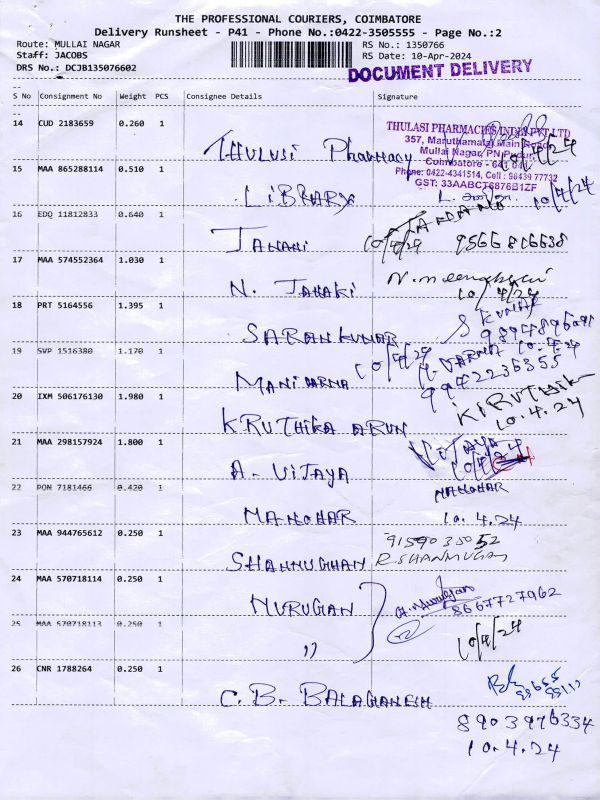 THE PROFESSIONAL COURIERS, COIMBATORE
Delivery Runsheet - P41 - Phone No.:0422-3505555 - Page No.:2
Route: MULLAI NAGAR RS No.: 1350766
Staff: JACOBS RS Date: 10-Apr-2024
DRS No.: DCJB135076602
DOCUMENT DELIVERY
S No Consignment No Weight PCS Consignee Details Signature
14 CUD 2183659 0.260 1
THULASI PHARMACIES INDIA PVT LTD
357, Maruthamalai Main Road
Mullai Nagar, PN Pudur
Coimbatore - 641 041
Phone: 0422-4341514, Cell : 98439 77732
GST: 33AABCT6876B1ZF
THULUSI Pharmacy 10/4/24
15 MAA 865288114 0.510 1
LIBRARY 10/4/24
16 EDQ 11812833 0.640 1
JANANI 10/4/24 9566816638
17 MAA 574552364 1.030 1
N. JANAKI 10/4/24
18 PRT 5164556 1.395 1
SARANKUMAR S KUMAR
9894896091
10.4.24
19 SVP 1516380 1.170 1
MANIVARMA 10/4/24 VARMA
9942236355
20 IXM 506176130 1.980 1
KRUTHIKA ARUN KIRUTHIKA
10.4.24
21 MAA 298157924 1.800 1
A. VIJAYA VIJAYA
22 PON 7181466 0.420 1
MANOHAR MANOHAR
10.4.24
23 MAA 944765612 0.250 1
SHANNUGHAN 9159035052
R.SHANMUGAM
24 MAA 570718114 0.250 1
MURUGAN 8667727962
25 MAA 570718113 0.250 1
,, 10/4/24
26 CNR 1788264 0.250 1
C. B. BALAGANESH
8903976334
10.4.24